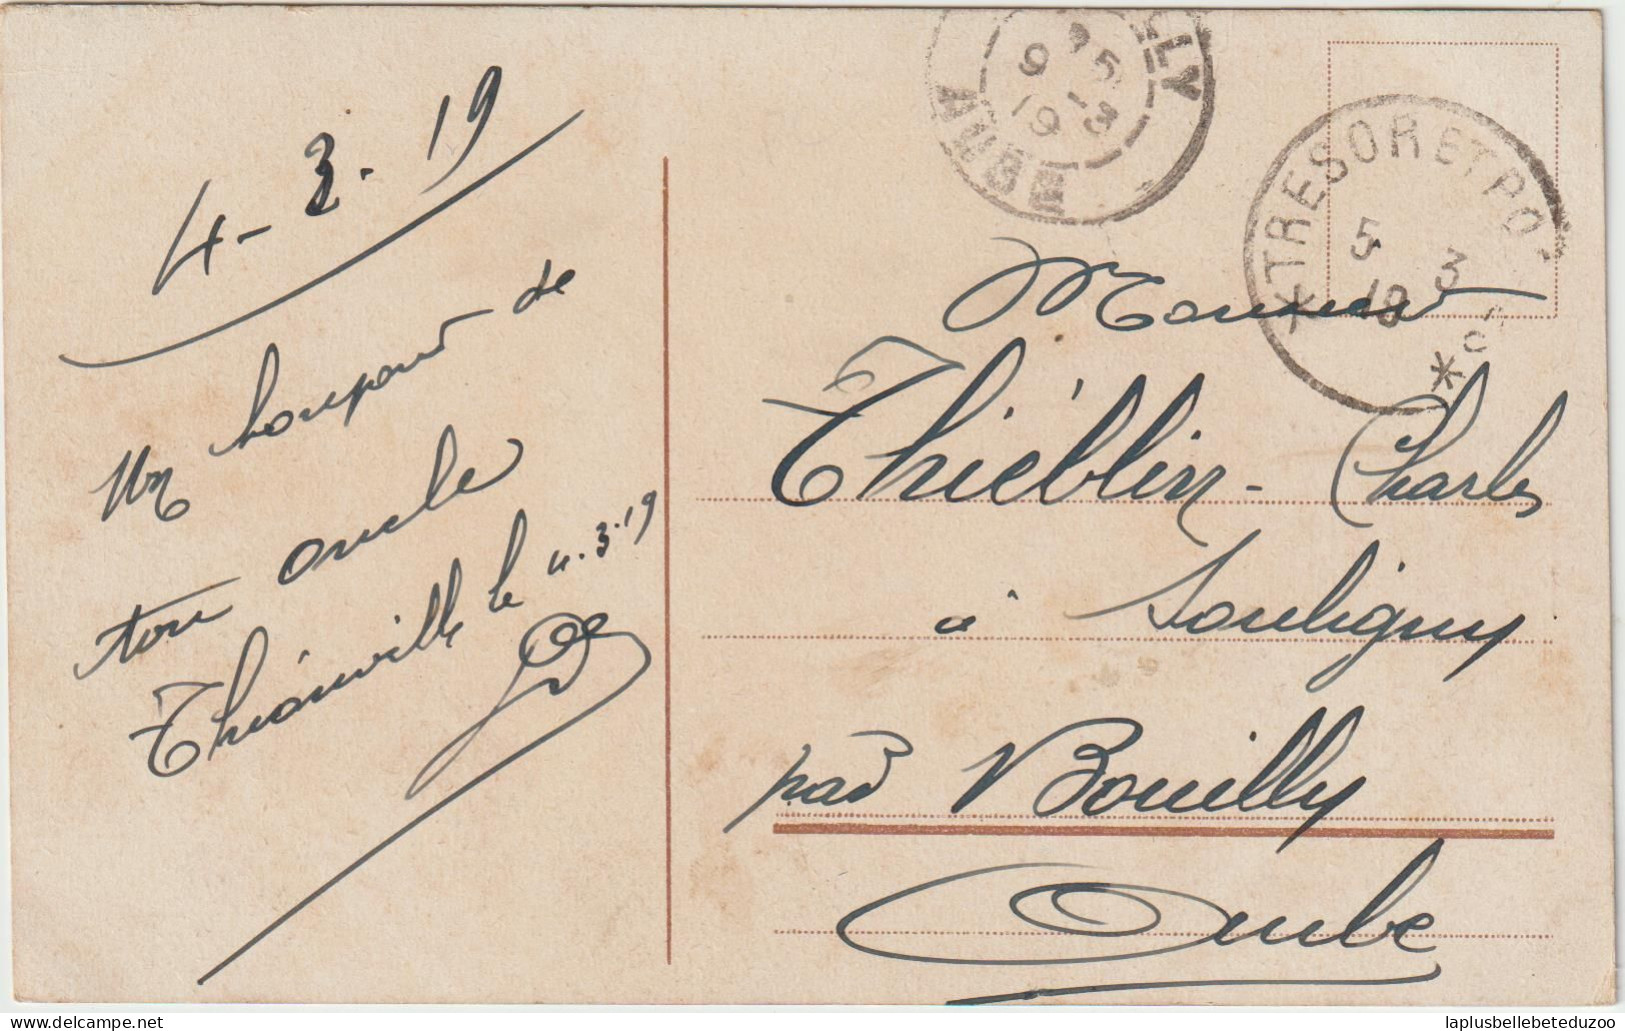 4-3-19
Un bonjour de
ton oncle
Thionville le 4.3.19
AUBE
9
19
TRESOR ET PO
5 3
19
Monsieur
Thiéblin-Charles
à Souligny
par Bouilly
Aube
laplusbellebeteduzoo